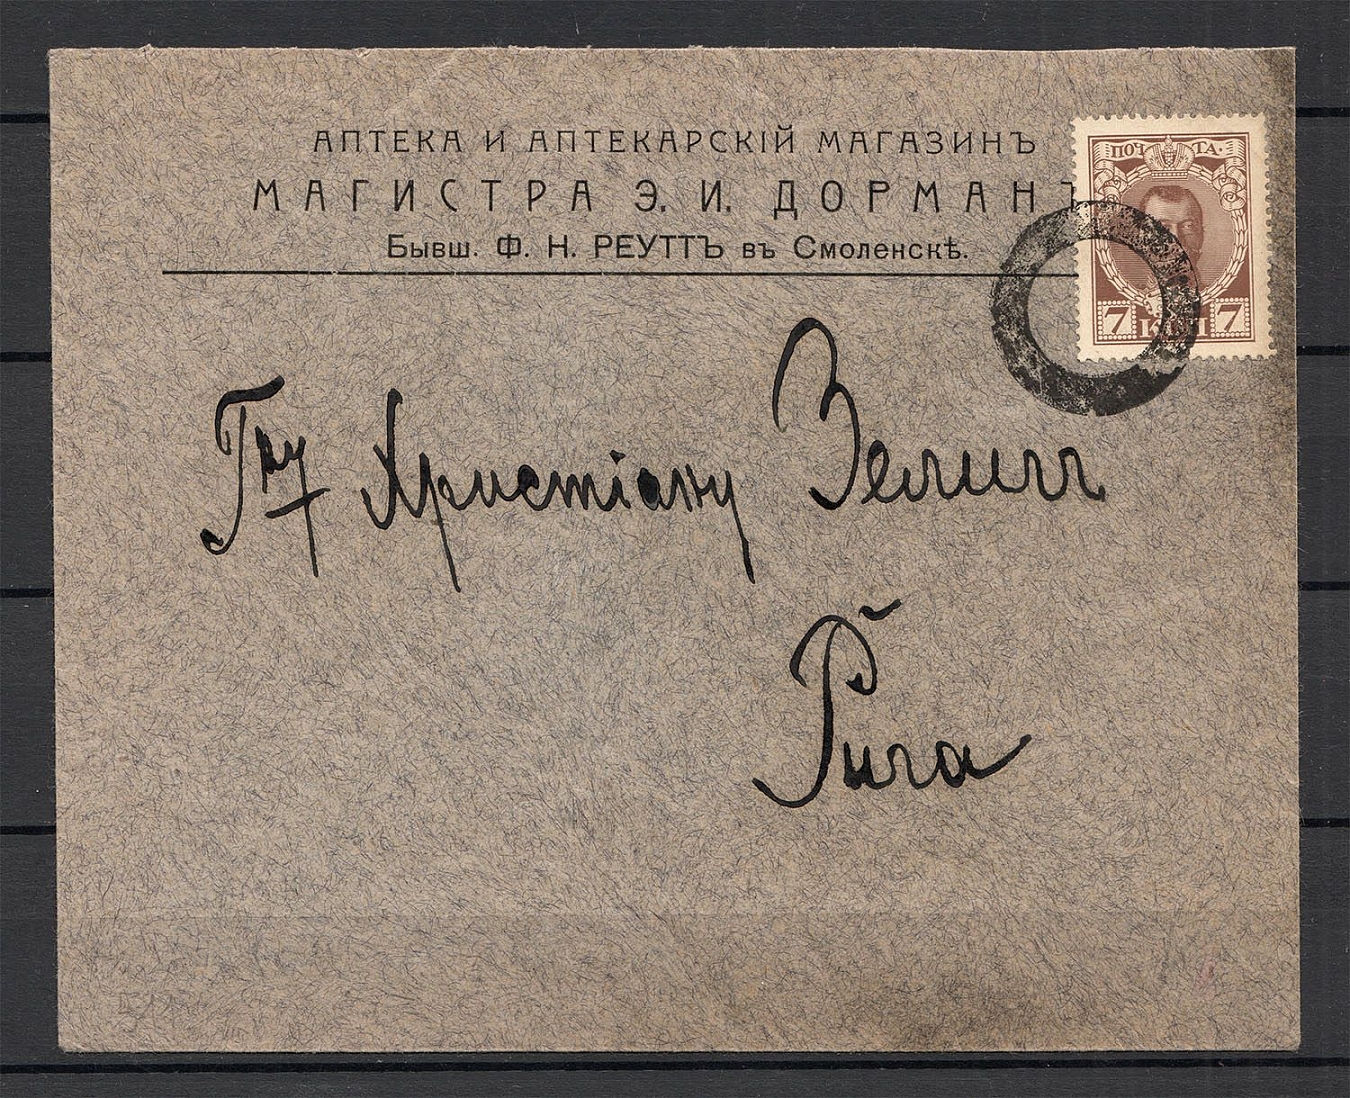 АПТЕКА И АПТЕКАРСКІЙ МАГАЗИНЪ
МАГИСТРА Э. И. ДОРМАНЪ
Бывш. Ф. Н. РЕУТТЪ въ Смоленскѣ.
ПОЧТА.
7 КОП 7
Гну Христіану
Рига